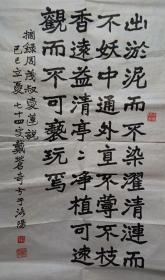 出淤泥而不染濯清漣而
不妖中通外直不蔓不枝
香遠益清亭々净植可遠
觀而不可褻玩焉
摘錄周茂叔愛蓮說
己巳夏七十四叟戴蒼奇于洛陽